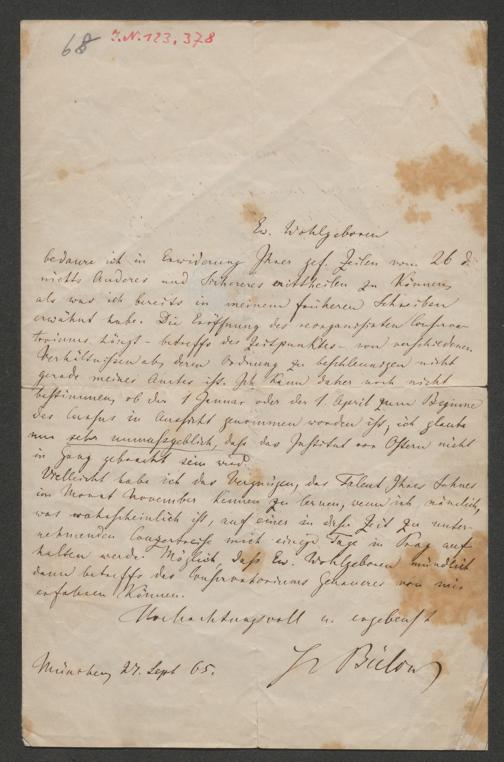 68
I.N. 123,378
Ew. Wohlgeboren
bedaure ich in Erwiderung Ihrer gef. Zeilen vom 26 d.
nichts Anderes und Sichereres mittheilen zu können,
als was ich bereits in meinem früheren Schreiben
erwähnt habe. Die Eröffnung des reorganisirten Conserva-
toriums hängt - betreffs des Zeitpunktes - von verschiedenen
Verhältnissen ab, deren Ordnung zu beschleunigen nicht
gerade meines Amtes ist. Ich kann daher noch nicht
bestimmen, ob der 1 Januar oder der 1. April zum Beginne
des Cursus in Aussicht genommen worden ist, ich glaube
nur sehr unmaßgeblich, daß das Institut vor Ostern nicht
in Gang gebracht sein wird.
Vielleicht habe ich das Vergnügen, das Talent Ihres Sohnes
im Monat November kennen zu lernen, wenn ich, nämlich,
was wahrscheinlich ist, auf einer in dieser Zeit zu unter-
nehmenden Conzertreise mich einige Tage in Prag auf
halten werde. Möglich, daß Ew. Wohlgeboren mündlich
dann betreffs des Conservatoriums Genaueres von mir
erfahren können.
Hochachtungsvoll u. ergebenst
Bülow
München 27. Sept 65.